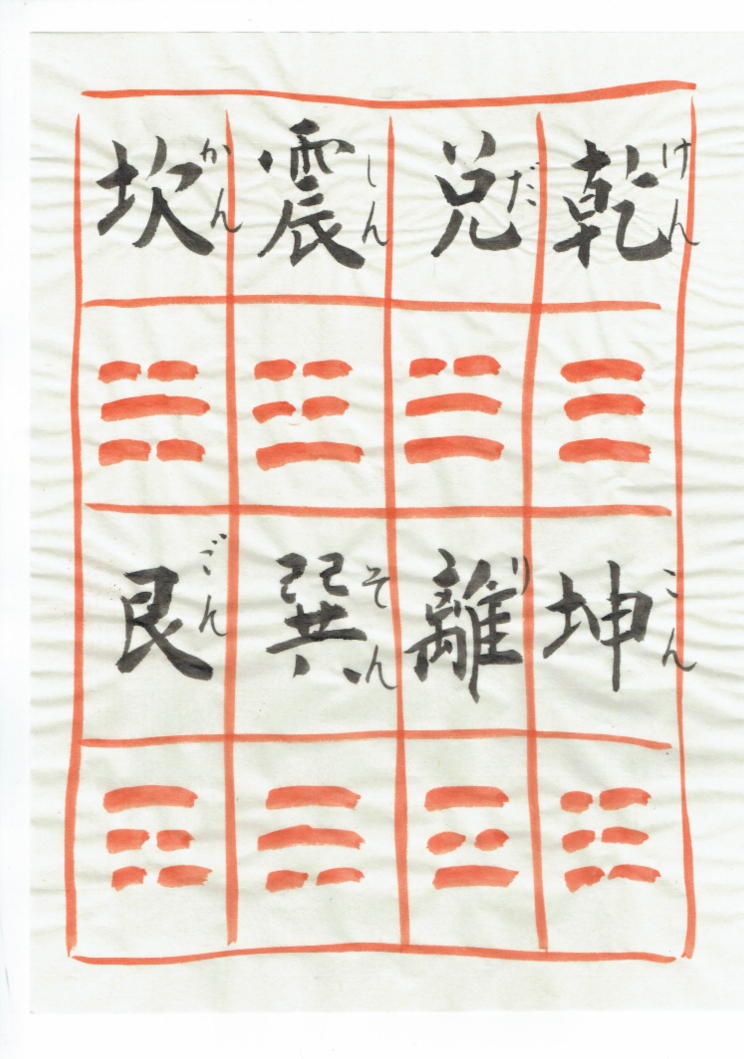 乾 けん
兌 だ
震 しん
坎 かん
坤 こん
離 り
巽 そん
艮 ごん